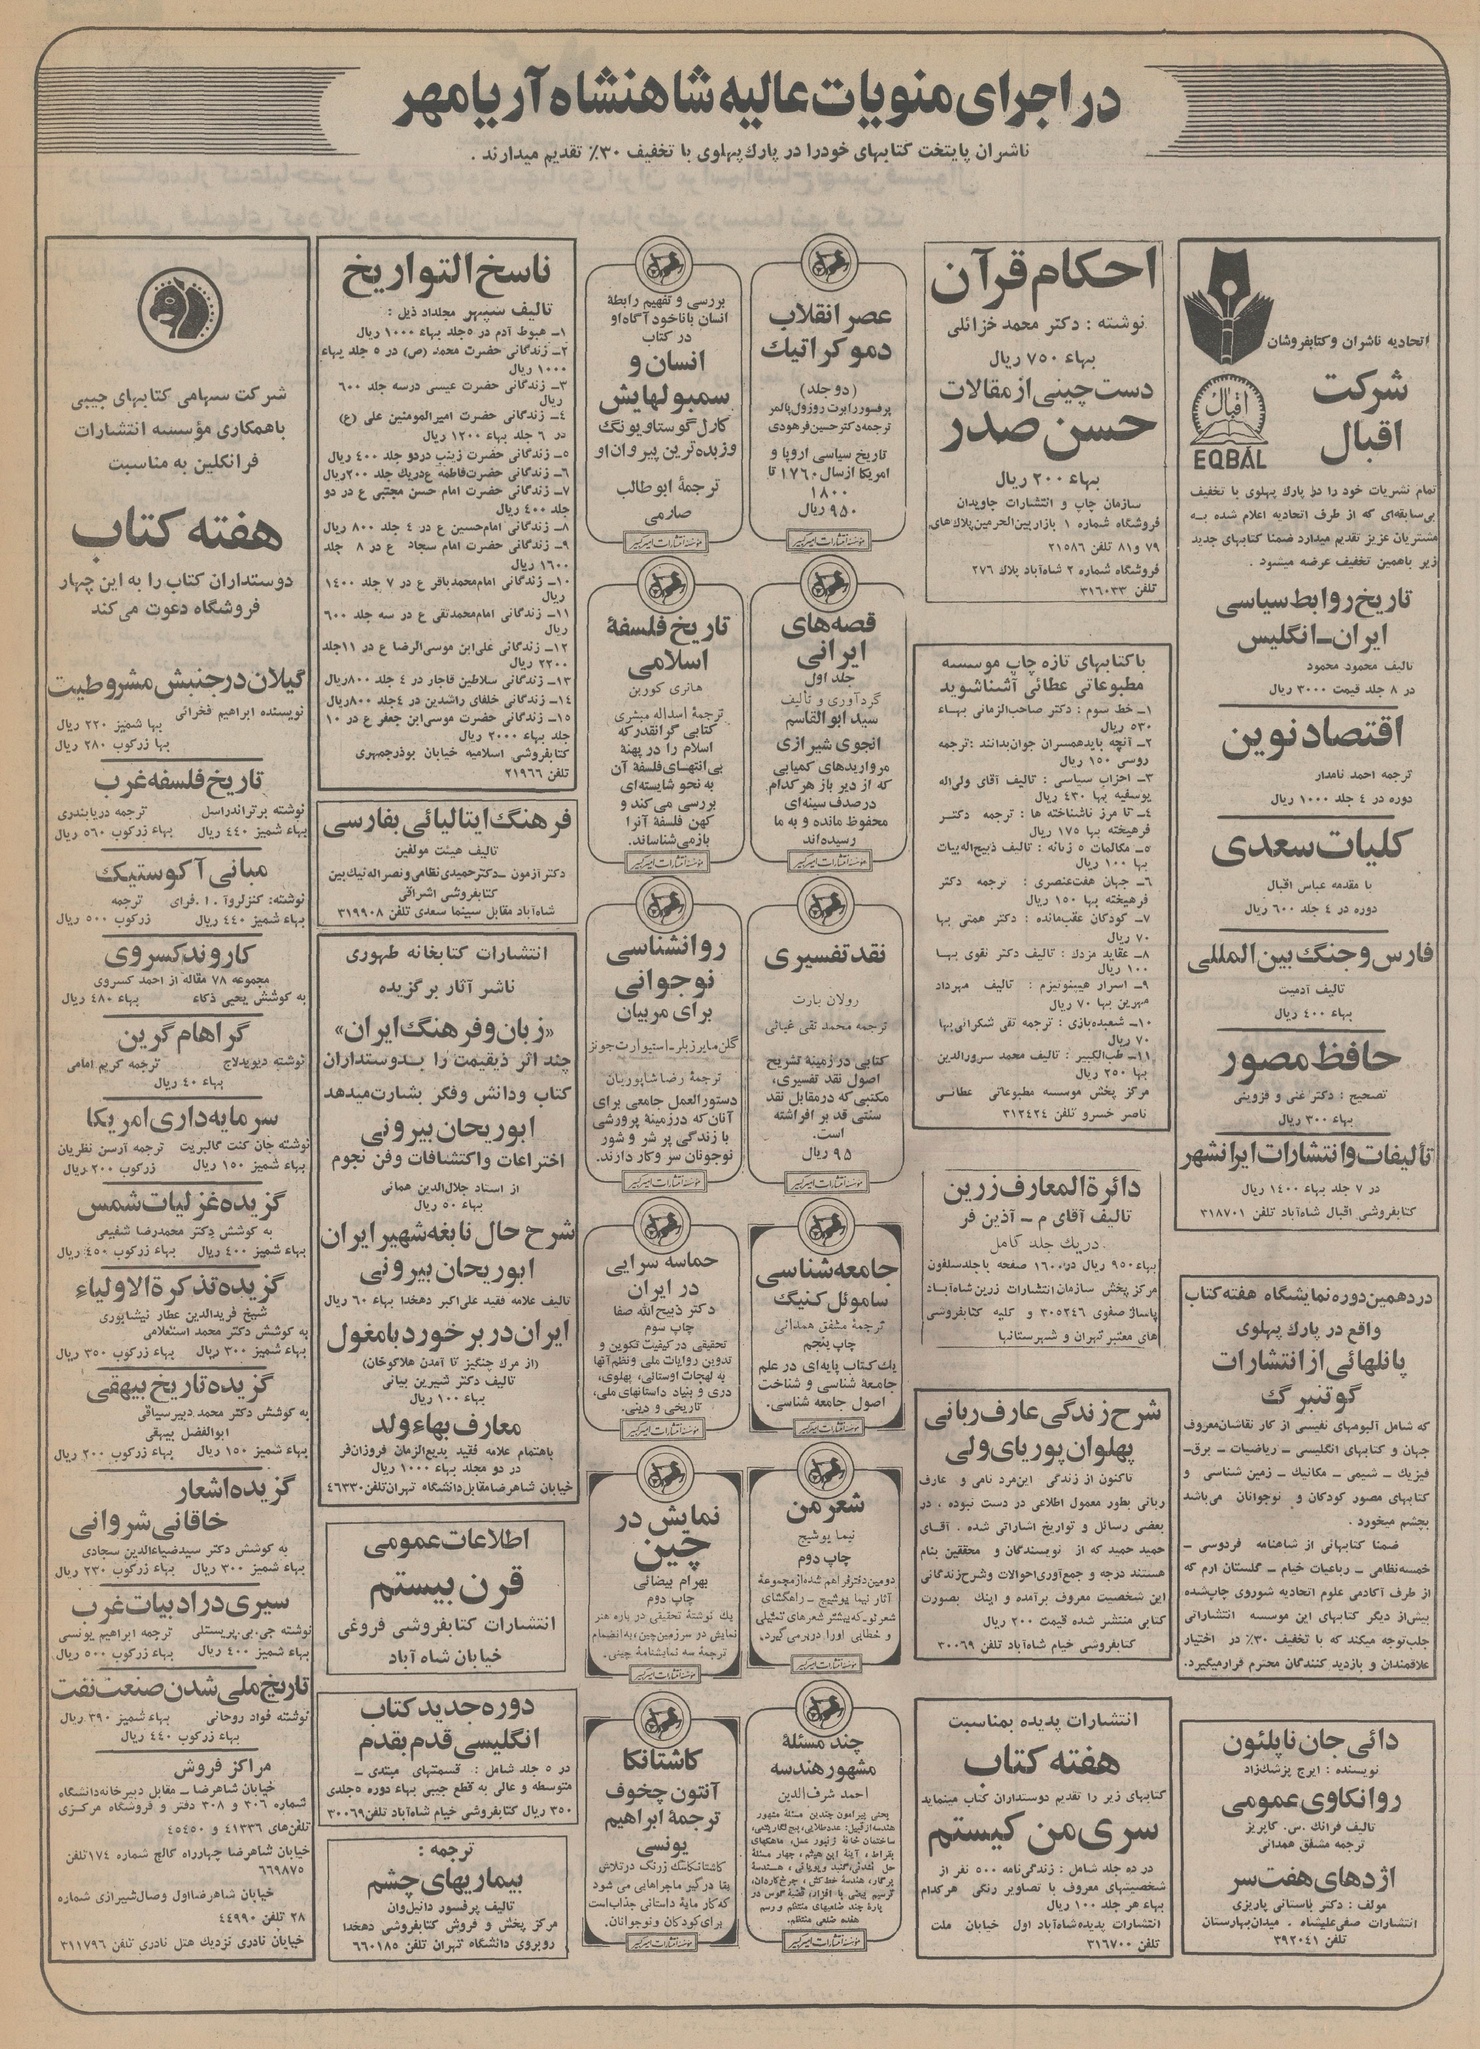 در اجرای منویات عالیه شاهنشاه آریامهر
ناشران پایتخت کتابهای خودرا در پارک پهلوی با تخفیف ۳۰٪ تقدیم میدارند .
اتحادیه ناشران و کتابفروشان
شرکت
اقبال
اقبال
EQBÁL
تمام نشریات خود را در پارک پهلوی با تخفیف
بی‌سابقه‌ای که از طرف اتحادیه اعلام شده به
مشتریان عزیز تقدیم میدارد ضمناً کتابهای جدید
زیر باهمین تخفیف عرضه میشود .
تاریخ روابط سیاسی
ایران-انگلیس
تالیف محمود محمود
در ۸ جلد قیمت ۳۰۰۰ ریال
اقتصاد نوین
ترجمه احمد نامدار
دوره در ٤ جلد ۱۰۰۰ ریال
کلیات سعدی
با مقدمه عباس اقبال
دوره در ٤ جلد ۶۰۰ ریال
فارس و جنگ بین المللی
تالیف آدمیت
بهاء ٤۰۰ ریال
حافظ مصور
تصحیح : دکتر غنی و قزوینی
بهاء ۳۰۰ ریال
تألیفات و انتشارات ایرانشهر
در ۷ جلد بهاء ۱٤۰۰ ریال
کتابفروشی اقبال شاه‌آباد تلفن ۳۱۸۷۰۱
در دهمین دوره نمایشگاه هفته کتاب
واقع در پارک پهلوی
پانلهائی از انتشارات
گوتنبرگ
که شامل آلبومهای نفیسی از کار نقاشان معروف
جهان و کتابهای انگلیسی - ریاضیات - برق-
فیزیک - شیمی - مکانیک - زمین شناسی و
کتابهای مصور کودکان و نوجوانان می‌باشد
بچشم میخورد .
ضمنا کتابهائی از شاهنامه فردوسی -
خمسه نظامی - رباعیات خیام - گلستان ارم که
از طرف آکادمی علوم اتحادیه شوروی چاپ‌شده
بیش‌از دیگر کتابهای این موسسه انتشاراتی
جلب‌توجه میکند که با تخفیف ۳۰٪ در اختیار
علاقمندان و بازدید کنندگان محترم قرار میگیرد.
دائی جان ناپلئون
نویسنده : ایرج پزشک‌زاد
روانکاوی عمومی
تالیف فرانک .س. کاپریز
ترجمه مشفق همدانی
اژدهای هفت سر
مولف : دکتر باستانی پاریزی
انتشارات صفی علیشاه . میدان بهارستان
تلفن ۳۹۲۰٤۱
احکام قرآن
نوشته : دکتر محمد خزائلی
بهاء ۷۵۰ ریال
دست چینی از مقالات
حسن صدر
بهاء ۲۰۰ ریال
سازمان چاپ و انتشارات جاویدان
فروشگاه شماره ۱ بازار بین‌الحرمین پلاک های
۷۹ و ۸۱ تلفن ۲۱۵۸۶
فروشگاه شماره ۲ شاه‌آباد پلاک ۲۷۶
تلفن ۳۱۶۰۳۳
با کتابهای تازه چاپ موسسه
مطبوعاتی عطائی آشنا شوید
۱- خط سوم : دکتر صاحب‌الزمانی بهاء
۵۳۰ ریال
۲- آنچه باید همسران جوان بدانند :ترجمه
روسی ۱۵۰ ریال
۳- احزاب سیاسی : تالیف آقای ولی‌اله
یوسفیه بها ٤۳۰ ریال
٤- تا مرز ناشناخته ها : ترجمه دکتر
فرهیخته بها ۱۷۵ ریال
۵- مکالمات ۵ زبانه : تالیف ذبیح‌اله بیات
بها ۱۰۰ ریال
۶- جهان هفت‌عنصری : ترجمه دکتر
فرهیخته بها ۱۵۰ ریال
۷- کودکان عقب‌مانده : دکتر همتی بها
۷۰ ریال
۸- عقاید مزدک : تالیف دکتر تقوی بها
۱۰۰ ریال
۹- اسرار هیپنوتیزم : تالیف مهرداد
مهرین بها ۷۰ ریال
۱۰- شعبده‌بازی : ترجمه تقی شکرانی بها
۷۰ ریال
۱۱- طب‌الکبیر : تالیف محمد سرورالدین
بها ۲۵۰ ریال
مرکز پخش موسسه مطبوعاتی عطائی
ناصر خسرو تلفن ۳۱۲٤۲٤
دائرة المعارف زرین
تالیف آقای م - آذین فر
در یک جلد کامل
بهاء ۹۵۰ ریال در ۱۶۰۰ صفحه با جلد سلفون
مرکز پخش سازمان انتشارات زرین شاه‌آباد
پاساژ صفوی ۳۰۵۲٤۶ و کلیه کتابفروشی
های معتبر تهران و شهرستانها
شرح زندگی عارف ربانی
پهلوان پوریای ولی
تاکنون از زندگی این‌مرد نامی و عارف
ربانی بطور معمول اطلاعی در دست نبوده . در
بعضی رسائل و تواریخ اشاراتی شده . آقای
حمید حمید که از نویسندگان و محققین بنام
هستند درجه و جمع‌آوری احوالات و شرح زندگانی
این شخصیت معروف برآمده و اینک بصورت
کتابی منتشر شده قیمت ۲۰۰ ریال
کتابفروشی خیام شاه‌آباد تلفن ۳۰۰۶۹
انتشارات پدیده بمناسبت
هفته کتاب
کتابهای زیر را تقدیم دوستداران کتاب مینماید
سری من کیستم
در ده جلد شامل : زندگی‌نامه ۵۰۰ نفر از
شخصیتهای معروف با تصاویر رنگی هرکدام
بهاء هر جلد ۱۰۰ ریال
انتشارات پدیده شاه‌آباد اول خیابان ملت
تلفن ۳۱۶۷۰۰
عصر انقلاب
دموکراتیک
(دو جلد)
پرفسور رابرت روزول پالمر
ترجمه دکتر حسین فرهودی
تاریخ سیاسی اروپا و
امریکا از سال ۱۷۶۰ تا
۱۸۰۰
۹۵۰ ریال
مؤسسهٔ انتشارات امیرکبیر
قصه‌های
ایرانی
جلد اول
گردآوری و تألیف
سید ابوالقاسم
انجوی شیرازی
مرواریدهای کمیابی
که از دیر باز هر کدام
در صدف سینه‌ای
محفوظ مانده و به ما
رسیده‌اند
مؤسسهٔ انتشارات امیرکبیر
نقد تفسیری
رولان بارت
ترجمه محمد تقی غیاثی
کتابی در زمینهٔ تشریح
اصول نقد تفسیری،
مکتبی که در مقابل نقد
سنتی قد بر افراشته
است.
۹۵ ریال
مؤسسهٔ انتشارات امیرکبیر
جامعه شناسی
ساموئل کنیگ
ترجمهٔ مشفق همدانی
چاپ پنجم
یک کتاب پایه‌ای در علم
جامعهٔ شناسی و شناخت
اصول جامعه شناسی.
مؤسسهٔ انتشارات امیرکبیر
شعر من
نیما یوشیج
چاپ دوم
دومین دفتر فراهم شده از مجموعهٔ
آثار نیما یوشیج - راهگشای
شعر نو - که بیشتر شعرهای تمثیلی
و خطابی او را در بر می گیرد.
مؤسسهٔ انتشارات امیرکبیر
چند مسئلهٔ
مشهور هندسه
احمد شرف الدین
بحثی پیرامون چندین مسئلهٔ مشهور
هندسه از قبیل: عدد طلایی، پنج لگاریتمی،
ساختمان خانهٔ زنبور عسل، ماهکهای
بقراط ، آینهٔ ابن هیثم ، چهار مسئلهٔ
پرگار، هندسهٔ خط کش ،
پاره چند ضلعیهای منتظم و رسم
هفده ضلعی منتظم.
مؤسسهٔ انتشارات امیرکبیر
بررسی و تفهیم رابطهٔ
انسان با ناخودآگاه او
در کتاب
انسان و
سمبولهایش
کارل گوستاو یونگ
و زبده ترین پیروان او
ترجمهٔ ابوطالب
صارمی
مؤسسهٔ انتشارات امیرکبیر
تاریخ فلسفهٔ
اسلامی
هانری کوربن
ترجمهٔ اسداله مبشری
کتابی گرانقدر که
اسلام را در پهنهٔ
بی‌انتهای فلسفهٔ آن
به نحو شایسته‌ای
بررسی می‌کند و
کهن فلسفهٔ آنرا
باز می شناساند.
مؤسسهٔ انتشارات امیرکبیر
روانشناسی
نوجوانی
برای مربیان
گلن مایرز بلر-استیوارت جونز
ترجمهٔ رضا شاپوریان
دستورالعمل جامعی برای
آنان که در زمینهٔ پرورشی
با زندگی پر شر و شور
نوجوانان سر و کار دارند.
مؤسسهٔ انتشارات امیرکبیر
حماسه سرایی
در ایران
دکتر ذبیح الله صفا
چاپ سوم
تحقیقی در کیفیت تکوین و
تدوین روایات ملی و نظم آنها
به لهجات اوستائی، پهلوی،
دری و بنیاد داستانهای ملی،
تاریخی و دینی.
مؤسسهٔ انتشارات امیرکبیر
نمایش در
چین
بهرام بیضائی
چاپ دوم
یک نوشتهٔ تحقیقی در باره هنر
نمایش در سرزمین چین، به انضمام
ترجمهٔ سه نمایشنامهٔ چینی.
مؤسسهٔ انتشارات امیرکبیر
کاشتانکا
آنتون چخوف
ترجمهٔ ابراهیم
یونسی
کاشتانکا سگ زرنگ در تلاش
بقا درگیر ماجراهایی می شود
که کار مایهٔ داستانی جذاب است
برای کودکان و نوجوانان.
مؤسسهٔ انتشارات امیرکبیر
ناسخ التواریخ
تالیف سپهر مجلدات ذیل :
۱- هبوط آدم در ۵ جلد بهاء ۱۰۰۰ ریال
۲- زندگانی حضرت محمد (ص) در ۵ جلد بهاء
۱۰۰۰ ریال
۳- زندگانی حضرت عیسی در سه جلد ۶۰۰
ریال
٤- زندگانی حضرت امیرالمومنین علی (ع)
در ۶ جلد بهاء ۱۲۰۰ ریال
۵- زندگانی حضرت زینب در دو جلد ٤۰۰ ریال
۶- زندگانی حضرت فاطمه ع در یک جلد ۲۰۰ ریال
۷- زندگانی حضرت امام حسن مجتبی ع در دو
جلد ٤۰۰ ریال
۸- زندگانی امام حسین ع در ٤ جلد ۸۰۰ ریال
۹- زندگانی حضرت امام سجاد ع در ۸ جلد
۱۶۰۰ ریال
۱۰- زندگانی امام محمد باقر ع در ۷ جلد ۱٤۰۰
ریال
۱۱- زندگانی امام محمد تقی ع در سه جلد ۶۰۰
ریال
۱۲- زندگانی علی‌ابن موسی‌الرضا ع در ۱۱ جلد
۲۲۰۰ ریال
۱۳- زندگانی سلاطین قاجار در ٤ جلد ۸۰۰ ریال
۱٤- زندگانی خلفای راشدین در ٤ جلد ۸۰۰ ریال
۱۵- زندگانی حضرت موسی‌ابن جعفر ع در ۱۰
جلد بهاء ۲۰۰۰ ریال
کتابفروشی اسلامیه خیابان بوذرجمهری
تلفن ۲۱۹۶۶
فرهنگ ایتالیائی بفارسی
تالیف هیئت مولفین
دکتر آزمون -دکتر حمیدی نظامی و نصراله نیک بین
کتابفروشی اشراقی
شاه‌آباد مقابل سینما سعدی تلفن ۳۱۹۹۰۸
انتشارات کتابخانه طهوری
ناشر آثار برگزیده
«زبان و فرهنگ ایران»
چند اثر ذیقیمت را بدوستداران
کتاب و دانش و فکر بشارت میدهد
ابوریحان بیرونی
اختراعات و اکتشافات و فن نجوم
از استاد جلال‌الدین همائی
بهاء ۵۰ ریال
شرح حال نابغه شهیر ایران
ابوریحان بیرونی
تالیف علامه فقید علی‌اکبر دهخدا بهاء ۶۰ ریال
ایران در برخورد با مغول
(از مرگ چنگیز تا آمدن هلاکوخان)
تالیف دکتر شیرین بیانی
بهاء ۱۰۰ ریال
معارف بهاء ولد
باهتمام علامه فقید بدیع‌الزمان فروزان‌فر
در دو مجلد بهاء ۱۰۰۰ ریال
خیابان شاهرضا مقابل دانشگاه تهران تلفن ٤۶۳۳۰
اطلاعات عمومی
قرن بیستم
انتشارات کتابفروشی فروغی
خیابان شاه آباد
دوره جدید کتاب
انگلیسی قدم بقدم
در ۵ جلد شامل : قسمتهای مبتدی -
متوسطه و عالی به قطع جیبی بهاء دوره ۵ جلدی
۳۵۰ ریال کتابفروشی خیام شاه‌آباد تلفن ۳۰۰۶۹
ترجمه :
بیماریهای چشم
تالیف پرفسور دانیل‌وان
مرکز پخش و فروش کتابفروشی دهخدا
روبروی دانشگاه تهران تلفن ۶۶۰۱۸۵
شرکت سهامی کتابهای جیبی
با همکاری مؤسسه انتشارات
فرانکلین به مناسبت
هفته کتاب
دوستداران کتاب را به این چهار
فروشگاه دعوت می‌کند
گیلان در جنبش مشروطیت
نویسنده ابراهیم فخرائی
بها شمیز ۲۲۰ ریال
بها زرکوب ۲۸۰ ریال
تاریخ فلسفه غرب
نوشته برتراند راسل ترجمه دریابندری
بهاء شمیز ٤٤۰ ریال بهاء زرکوب ۵۶۰ ریال
مبانی آکوستیک
نوشته: کنزلرو آ . ا .فرای ترجمه
بهاء شمیز ٤٤۰ ریال زرکوب ۵۰۰ ریال
کاروند کسروی
مجموعه ۷۸ مقاله از احمد کسروی
به کوشش یحیی ذکاء بهاء ٤۸۰ ریال
گراهام گرین
نوشته دیویدلاج ترجمه کریم امامی
بهاء ٤۰ ریال
سرمایه داری امریکا
نوشته جان کنت گالبریت ترجمه آرسن نظریان
بهاء شمیز ۱۵۰ ریال زرکوب ۲۰۰ ریال
گزیده غزلیات شمس
به کوشش دکتر محمدرضا شفیعی
بهاء شمیز ٤۰۰ ریال بهاء زرکوب ٤۵۰ ریال
گزیده تذکرة الاولیاء
شیخ فریدالدین عطار نیشابوری
به کوشش دکتر محمد استعلامی
بهاء شمیز ۳۰۰ ریال بهاء زرکوب ۳۵۰ ریال
گزیده تاریخ بیهقی
به کوشش دکتر محمد دبیرسیاقی
ابوالفضل بیهقی
بهاء شمیز ۱۵۰ ریال بهاء زرکوب ۲۰۰ ریال
گزیده اشعار
خاقانی شروانی
به کوشش دکتر سیدضیاءالدین سجادی
بهاء شمیز ۳۰۰ ریال بهاء زرکوب ۲۳۰ ریال
سیری در ادبیات غرب
نوشته جی.بی.پریستلی ترجمه ابراهیم یونسی
بهاء شمیز ٤۰۰ ریال بهاء زرکوب ۵۰۰ ریال
تاریخ ملی شدن صنعت نفت
نوشته فواد روحانی بهاء شمیز ۳۹۰ ریال
بهاء زرکوب ٤٤۰ ریال
مراکز فروش
خیابان شاهرضا - مقابل دبیرخانه دانشگاه
شماره ۳۰۶ و ۳۰۸ دفتر و فروشگاه مرکزی
تلفن‌های ٤۱۳۳۶ و ٤۵٤۵۰
خیابان شاهرضا چهارراه کالج شماره ۱۷٤ تلفن
۶۶۹۸۷۵
خیابان شاهرضا اول وصال شیرازی شماره
۲۸ تلفن ٤٤۹۹۰
خیابان نادری نزدیک هتل نادری تلفن ۳۱۱۷۹۶